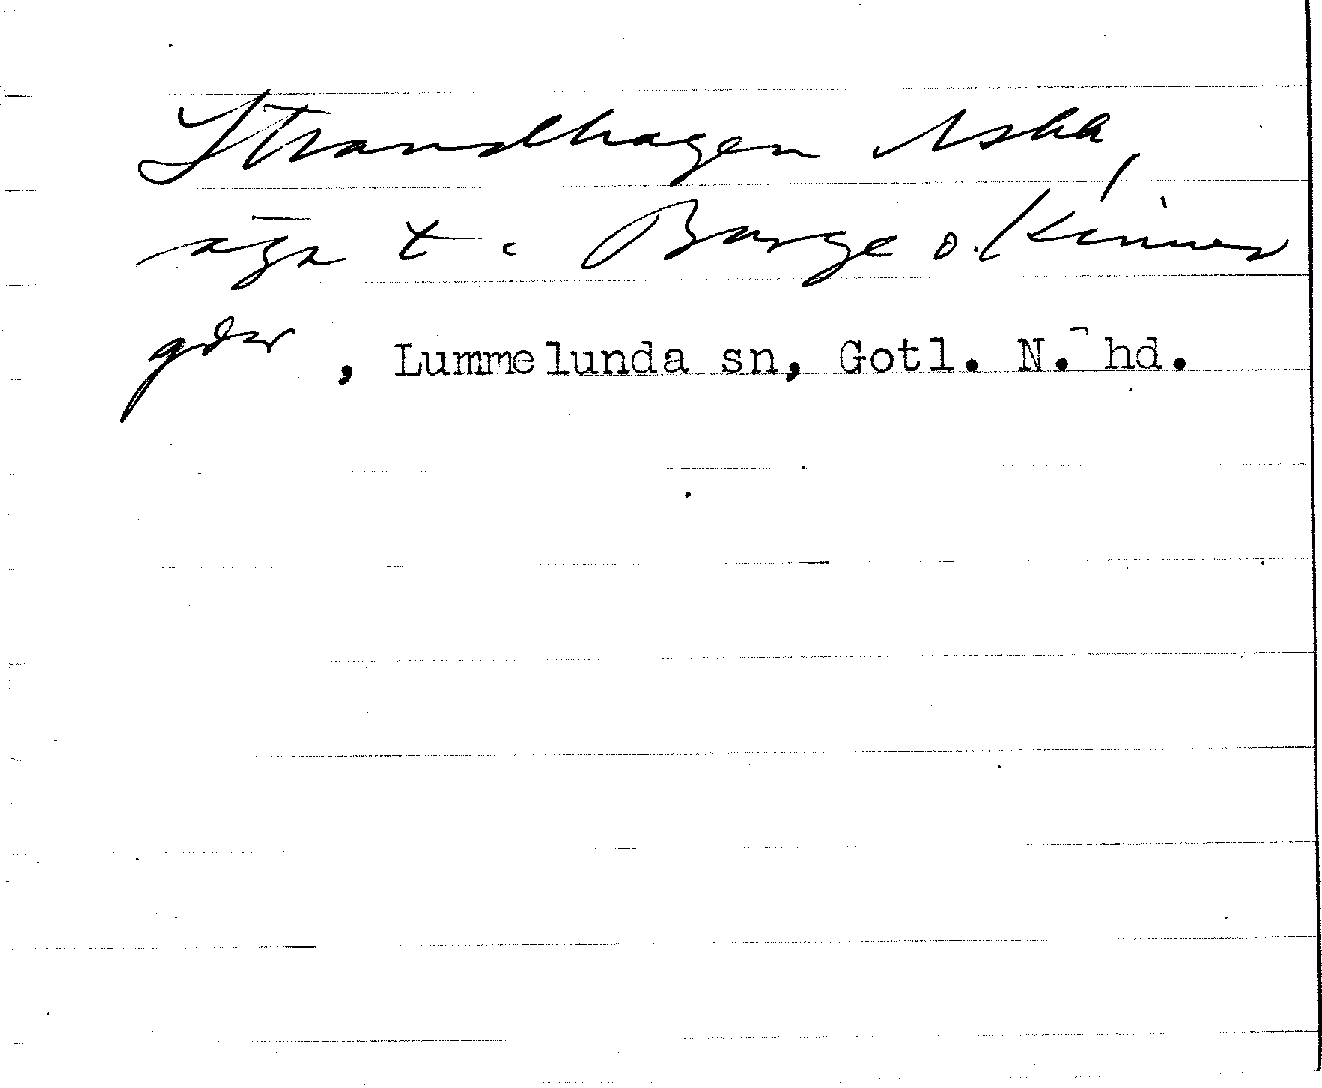 Strandhagen Aska,
äga t. Burge o. Kinner
gdr, Lummelunda sn, Gotl. N. hd.